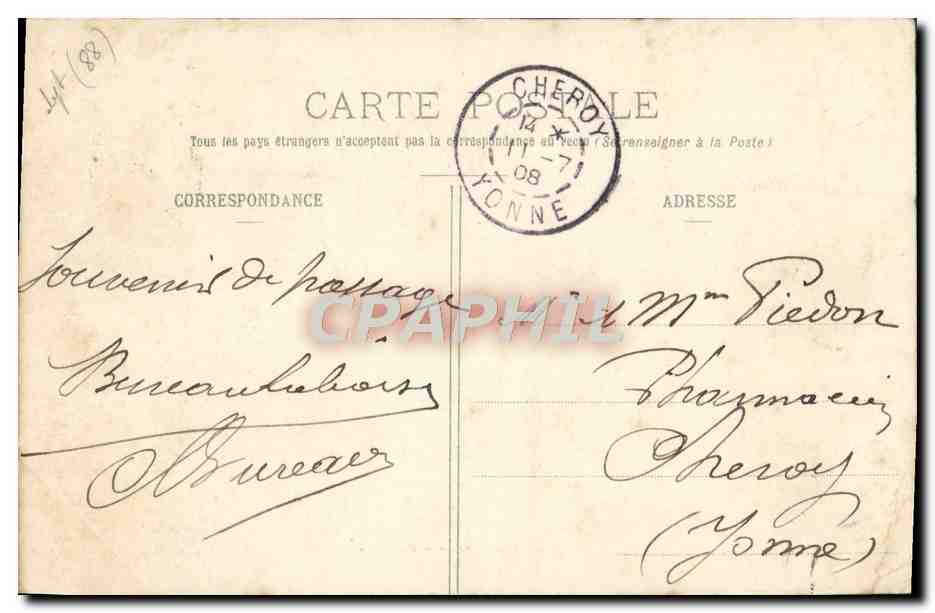 (88)
CARTE POSTALE
Tous les pays étrangers n'acceptent pas la correspondance au recto (Se renseigner à la Poste)
CHEROY
14 *
11 - 7
08
YONNE
CORRESPONDANCE
Souvenir de passage
Bureau
ADRESSE
Mr & Mme Piedon
Pharmacien
Cheroy
(Yonne)
CPAPHIL